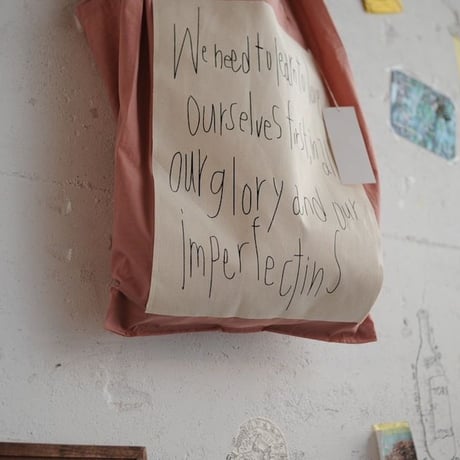 We need to learn to
ourselves first in
our glory and our
imperfectins